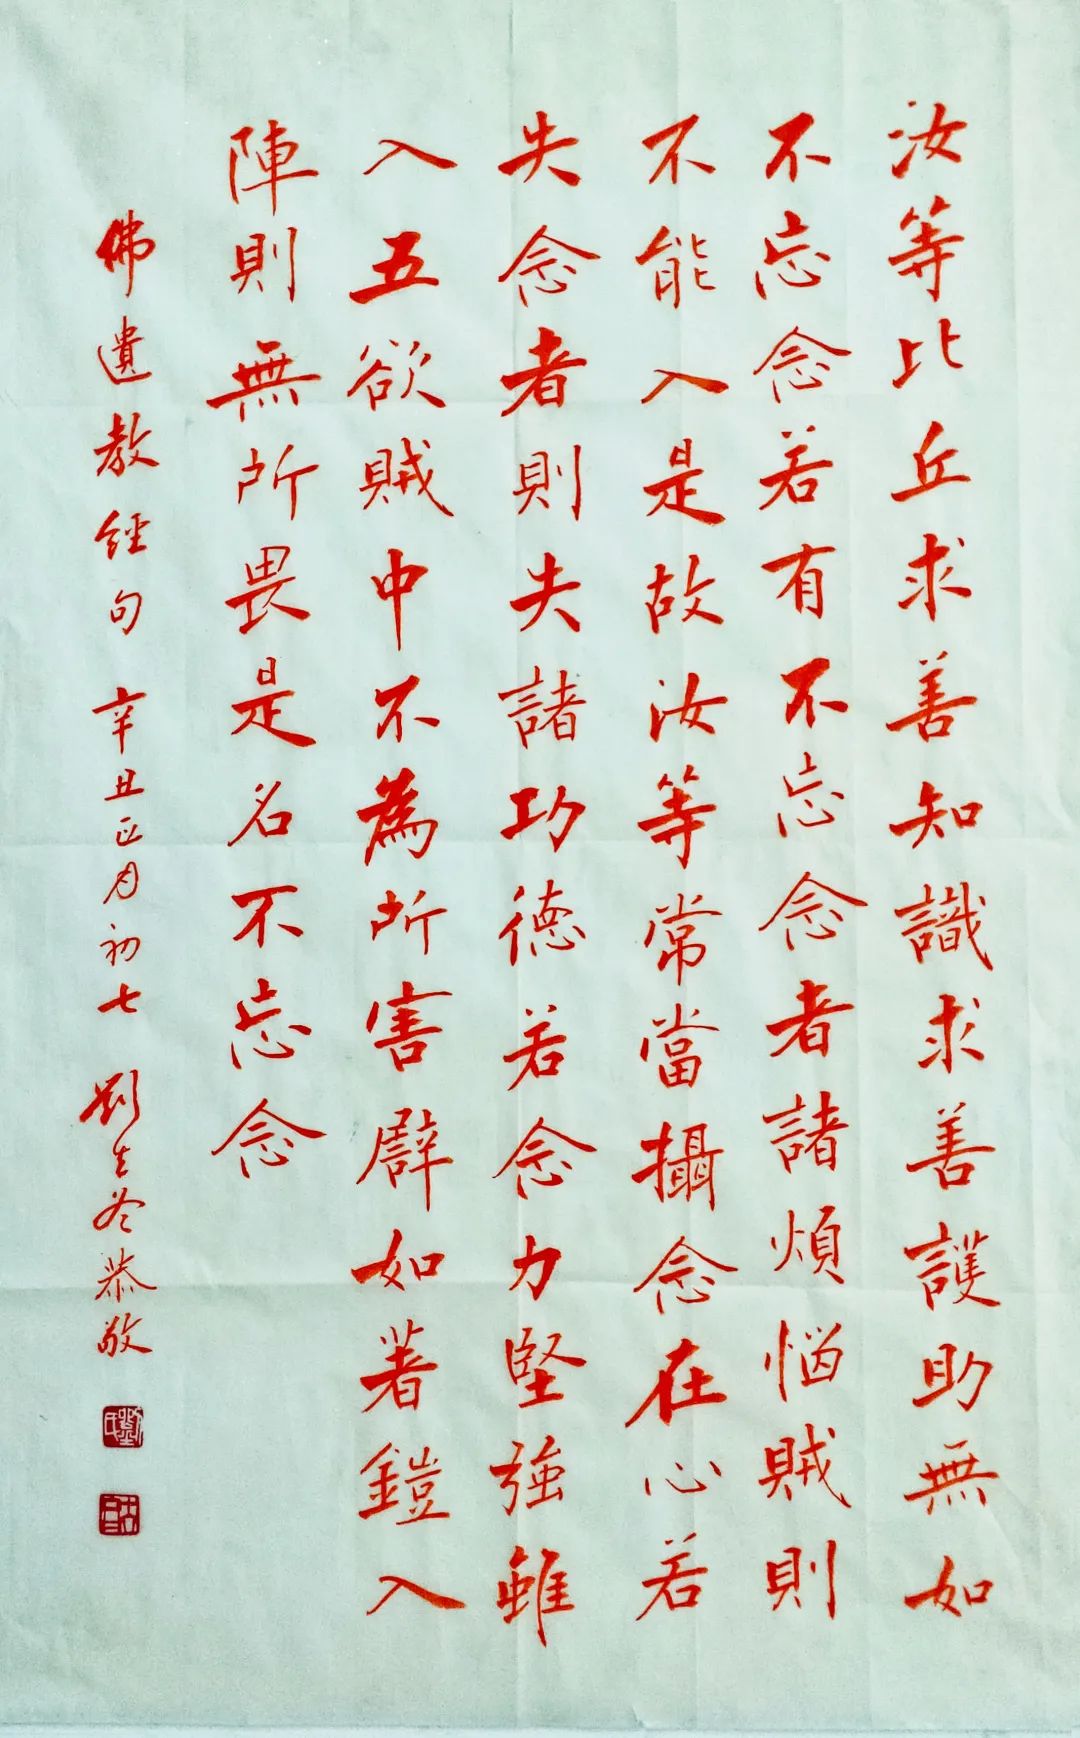 汝等比丘求善知識求善護助無如
不忘念若有不忘念者諸煩惱賊則
不能入是故汝等常當攝念在心若
失念者則失諸功德若念力堅強雖
入五欲賊中不為所害譬如著鎧入
陣則無所畏是名不忘念
佛遺教經句 辛丑正月初七 劉生冬恭敬